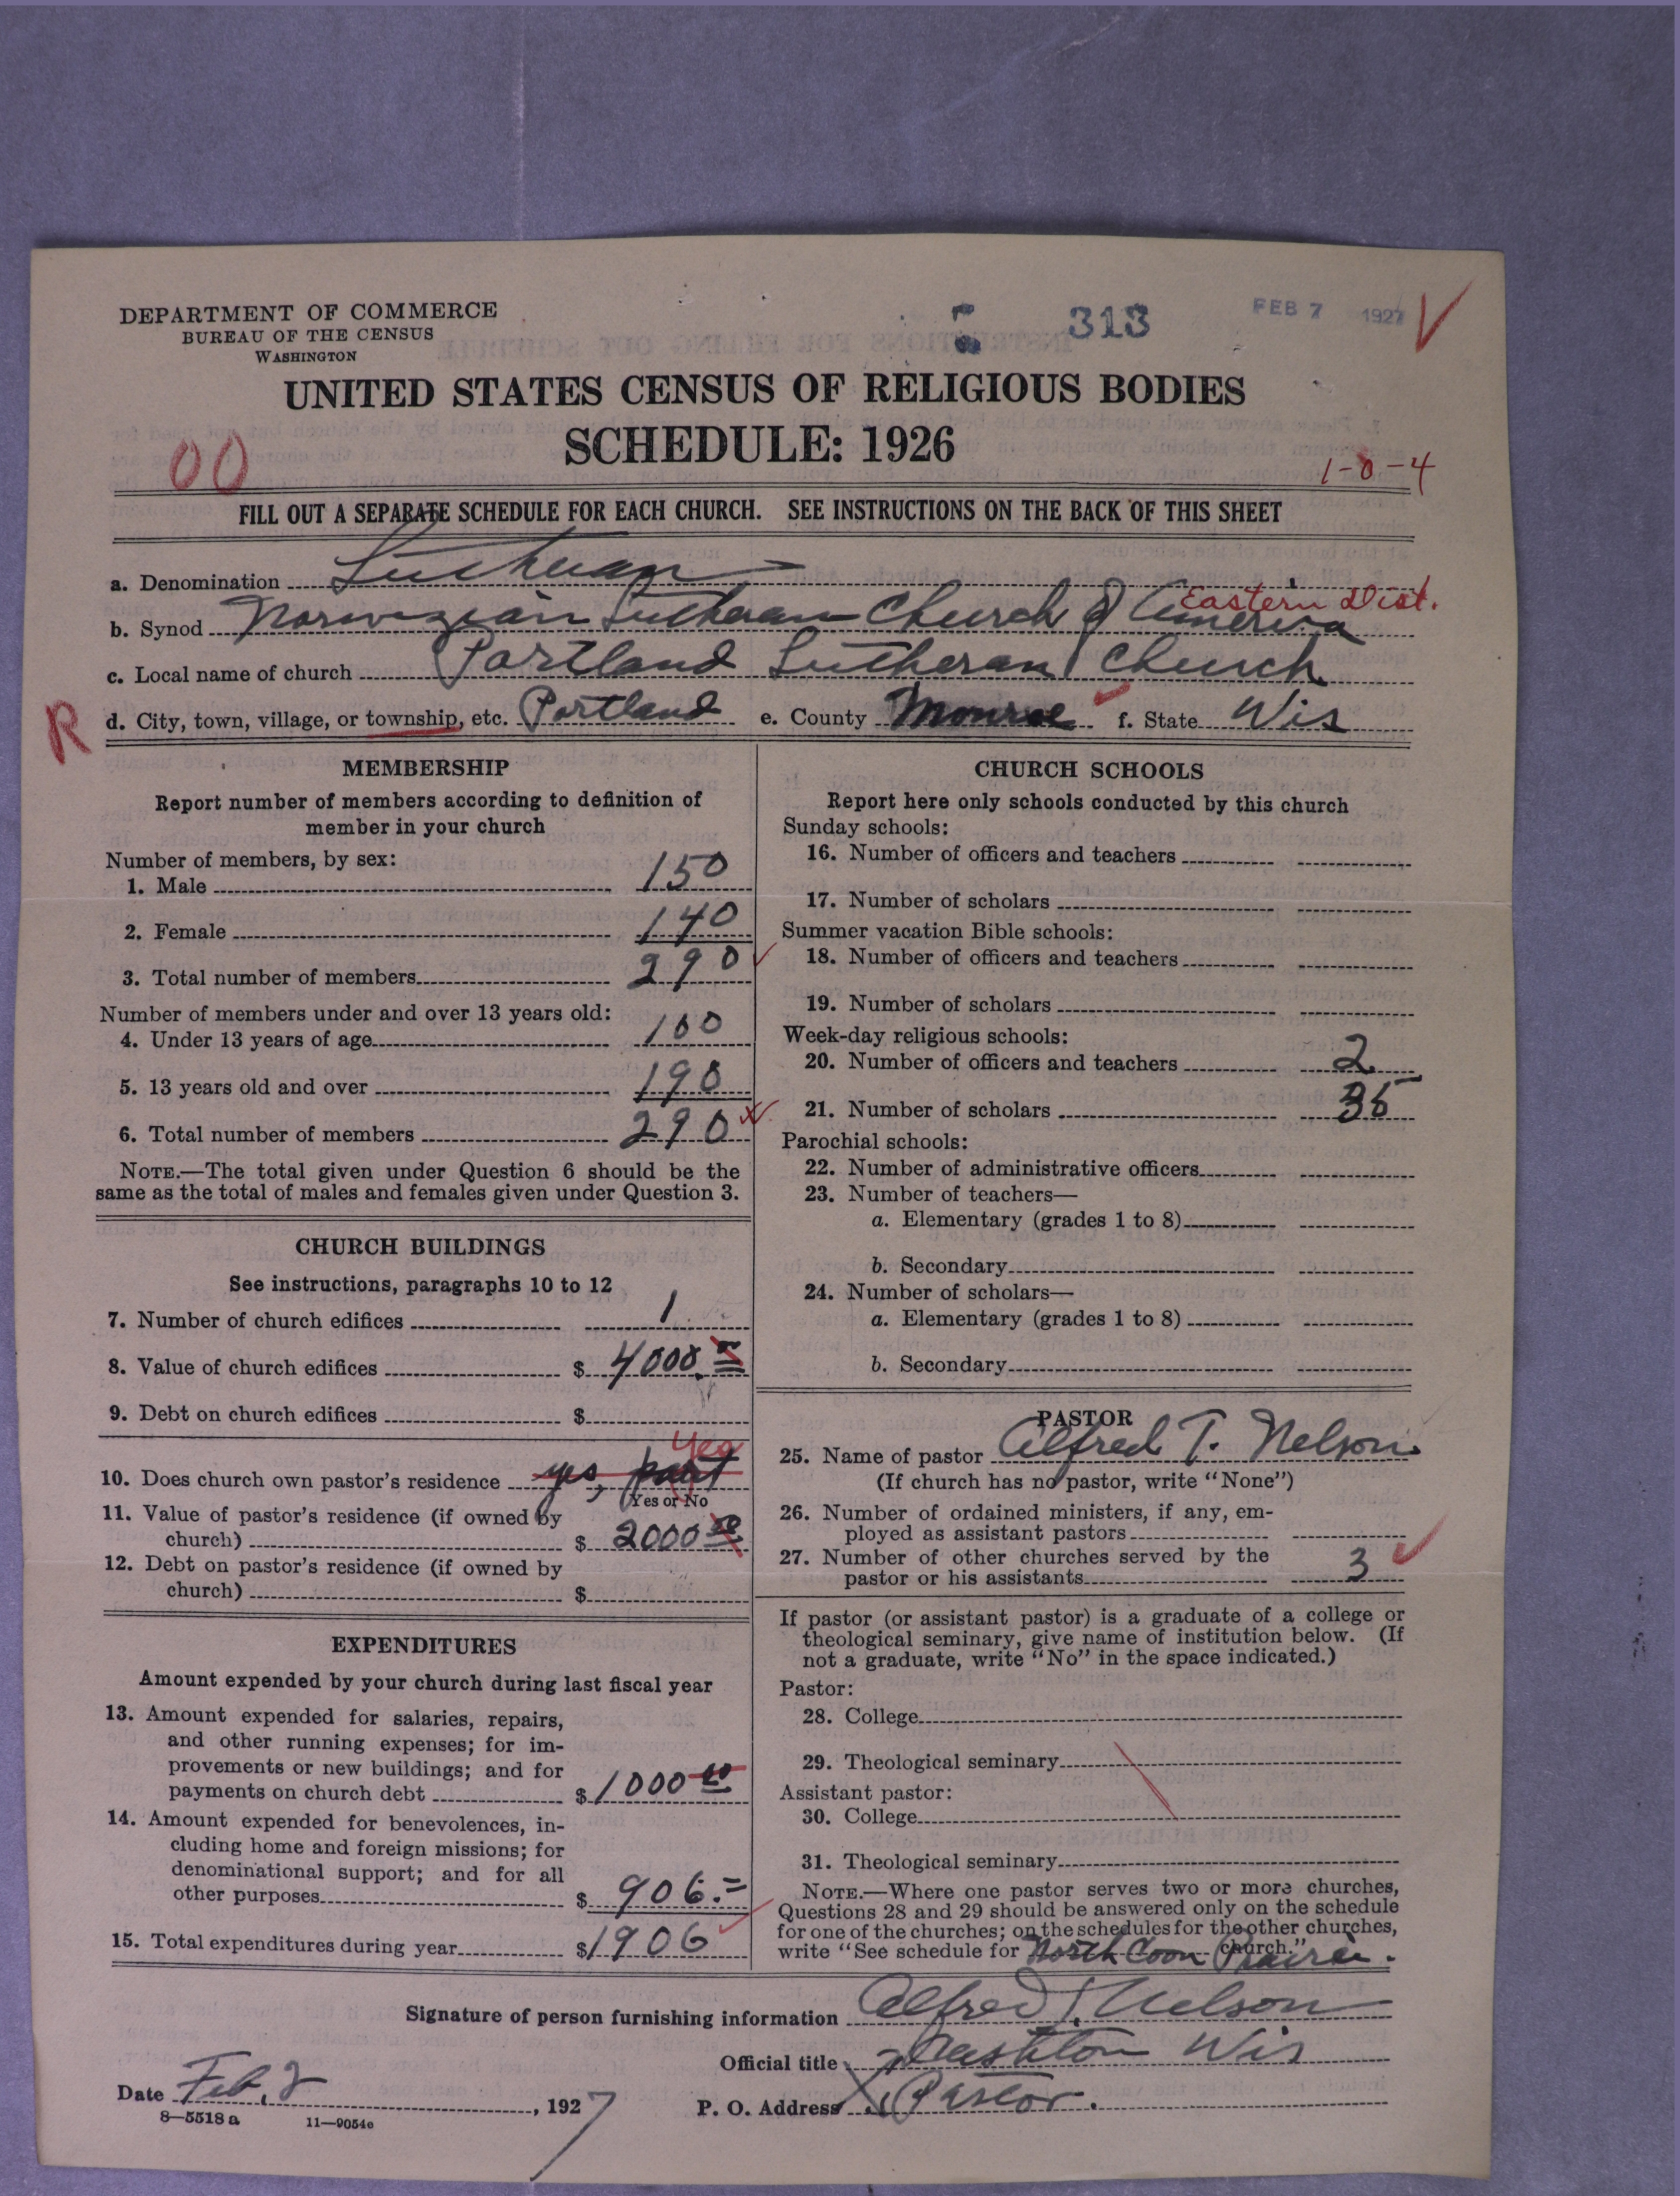 DEPARTMENT OF COMMERCE
BUREAU OF THE CENSUS
WASHINGTON
313
FEB 7 1927
UNITED STATES CENSUS OF RELIGIOUS BODIES
SCHEDULE: 1926
00
1-0-4
FILL OUT A SEPARATE SCHEDULE FOR EACH CHURCH. SEE INSTRUCTIONS ON THE BACK OF THIS SHEET
a. Denomination Lutheran
Eastern Dist.
b. Synod Norwegian Lutheran Church of America
c. Local name of church Portland Lutheran Church
R
d. City, town, village, or township, etc. Portland e. County Monroe f. State Wis
MEMBERSHIP
Report number of members according to definition of
member in your church
Number of members, by sex:
1. Male 150
2. Female 140
3. Total number of members 290
Number of members under and over 13 years old:
4. Under 13 years of age 100
5. 13 years old and over 190
6. Total number of members 290
NOTE.—The total given under Question 6 should be the
same as the total of males and females given under Question 3.
CHURCH BUILDINGS
See instructions, paragraphs 10 to 12
7. Number of church edifices 1
8. Value of church edifices $ 4000
9. Debt on church edifices $
Yes
10. Does church own pastor's residence yes, part
Yes or No
11. Value of pastor's residence (if owned by
church) $ 2000 00
12. Debt on pastor's residence (if owned by
church) $
EXPENDITURES
Amount expended by your church during last fiscal year
13. Amount expended for salaries, repairs,
and other running expenses; for im-
provements or new buildings; and for
payments on church debt $ 1000 00
14. Amount expended for benevolences, in-
cluding home and foreign missions; for
denominational support; and for all
other purposes $ 906.=
15. Total expenditures during year $ 1906
CHURCH SCHOOLS
Report here only schools conducted by this church
Sunday schools:
16. Number of officers and teachers
17. Number of scholars
Summer vacation Bible schools:
18. Number of officers and teachers
19. Number of scholars
Week-day religious schools:
20. Number of officers and teachers 2
21. Number of scholars 35
Parochial schools:
22. Number of administrative officers
23. Number of teachers—
a. Elementary (grades 1 to 8)
b. Secondary
24. Number of scholars—
a. Elementary (grades 1 to 8)
b. Secondary
PASTOR
25. Name of pastor Alfred T. Nelson
(If church has no pastor, write "None")
26. Number of ordained ministers, if any, em-
ployed as assistant pastors
27. Number of other churches served by the
pastor or his assistants 3
If pastor (or assistant pastor) is a graduate of a college or
theological seminary, give name of institution below. (If
not a graduate, write "No" in the space indicated.)
Pastor:
28. College
29. Theological seminary
Assistant pastor:
30. College
31. Theological seminary
NOTE.—Where one pastor serves two or more churches,
Questions 28 and 29 should be answered only on the schedule
for one of the churches; on the schedules for the other churches,
write "See schedule for North Coon Prairie church."
Signature of person furnishing information Alfred T. Nelson
Official title Cashton Wis
Date Feb. 2, 1927
P. O. Address Pastor.
8—5518 a 11—9054e